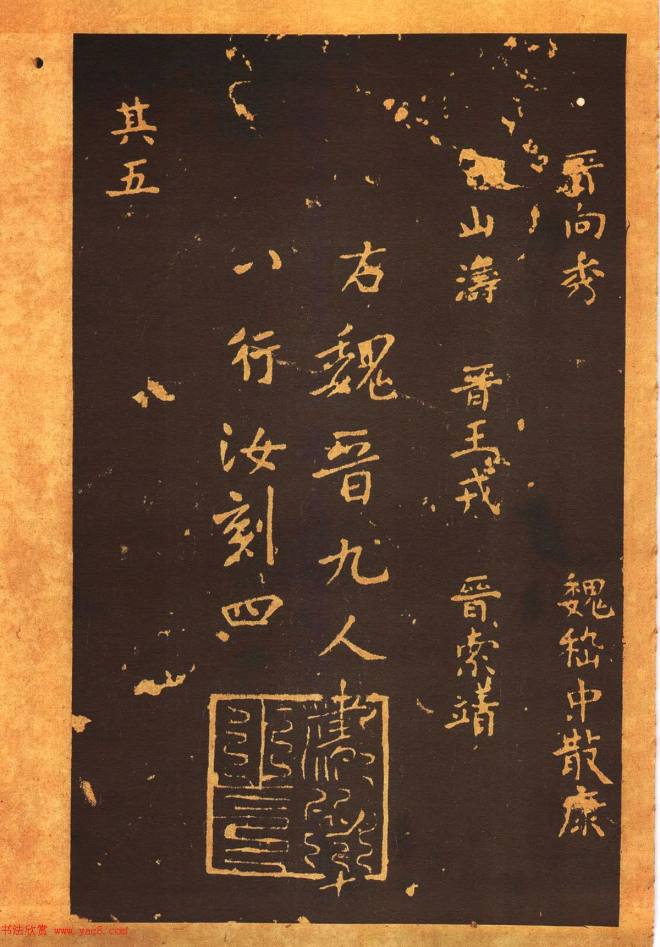 晉向秀 魏嵇中散康
山濤 晉王戎 晉索靖
右魏晉九人書
八行汝刻四
其五
书法欣赏 www.yac8.com